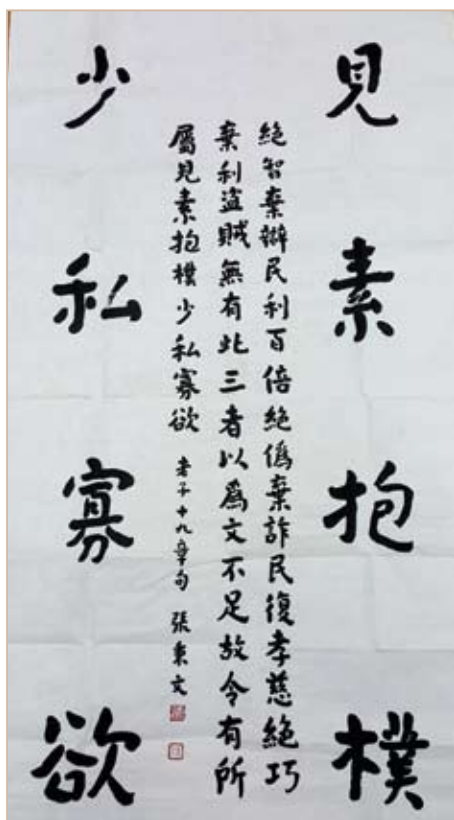 見素抱樸
絕智棄辯民利百倍絕僞棄詐民復孝慈絕巧
棄利盜賊無有此三者以爲文不足故令有所
屬見素抱樸少私寡欲 老子十九章句 張秉文
少私寡欲